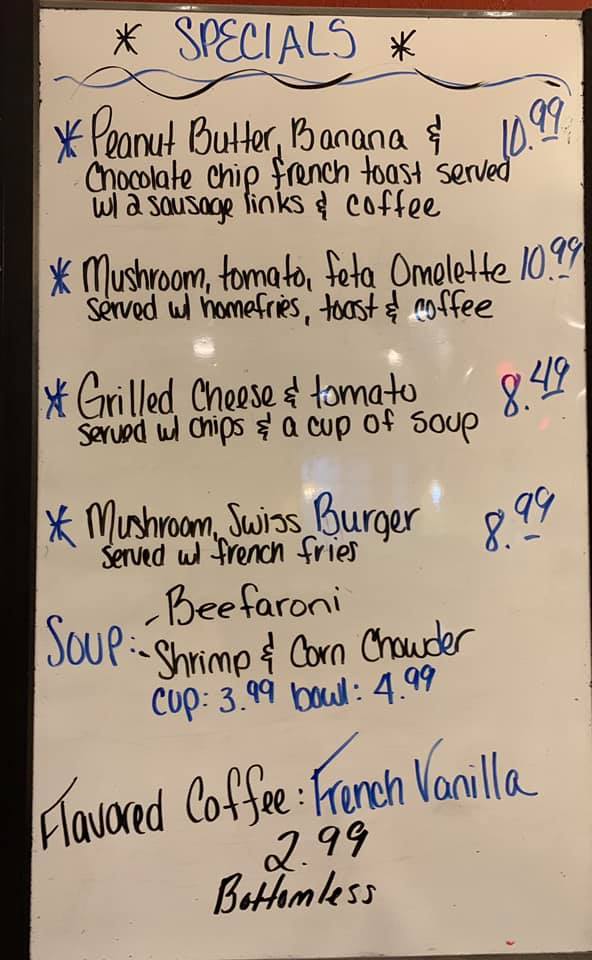 * SPECIALS *
* Peanut Butter, Banana & 10.99
Chocolate chip french toast served
w/ 2 sausage links & coffee
* Mushroom, tomato, feta Omelette 10.99
served w/ homefries, toast & coffee
* Grilled Cheese & tomato 8.49
served w/ chips & a cup of soup
* Mushroom, Swiss Burger 8.99
served w/ french fries
Soup: - Beefaroni
- Shrimp & Corn Chowder
cup: 3.99 bowl: 4.99
Flavored Coffee: French Vanilla
2.99
Bottomless